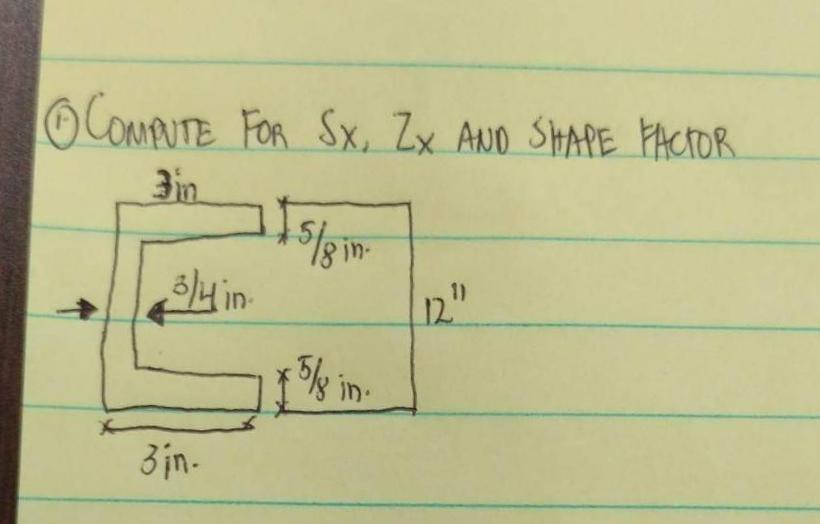 ① COMPUTE FOR Sx, Zx AND SHAPE FACTOR
3in
5/8 in.
3/4 in.
12"
5/8 in.
3in.